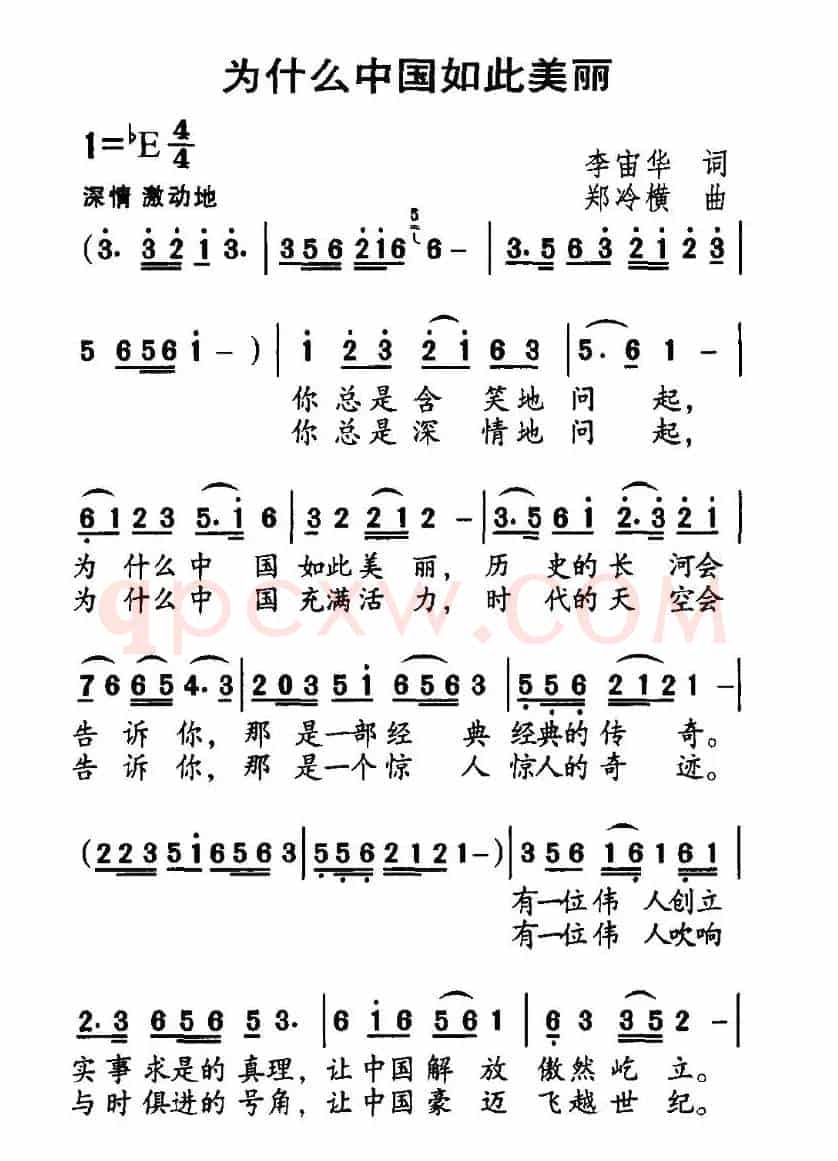 为什么中国如此美丽
1=♭E 4/4
李宙华 词
深情 激动地
郑冷横 曲
(3. 3 2 1 3. | 3 5 6 2 1 6 5 6 – | 3. 5 6 3 2 1 2 3 |
5 6 5 6 1 – ) | 1 2 3 2 1 6 3 | 5. 6 1 – |
你总是含 笑地问 起,
你总是深 情地问 起,
6 1 2 3 5. 1 6 | 3 2 2 2 1 2 – | 3. 5 6 1 2. 3 2 1 |
为 什么中 国 如此美 丽, 历 史的长 河会
为 什么中 国 充满活 力, 时 代的天 空会
qpcxw.COM
7 6 6 5 4. 3 | 2 0 3 5 1 6 5 6 3 | 5 5 6 2 1 2 1 – |
告 诉 你, 那 是一部经 典 经典的传 奇。
告 诉 你, 那 是一个惊 人 惊人的奇 迹。
(2 2 3 5 1 6 5 6 3 | 5 5 6 2 1 2 1 –) | 3 5 6 1 6 6 1 |
有一位伟 人创立
有一位伟 人吹响
2. 3 6 5 6 5 3. | 6 1 6 5 6 1 | 6 3 3 5 2 – |
实事求是的真理, 让中国解 放 傲然屹 立。
与时俱进的号角, 让中国豪 迈 飞越世 纪。